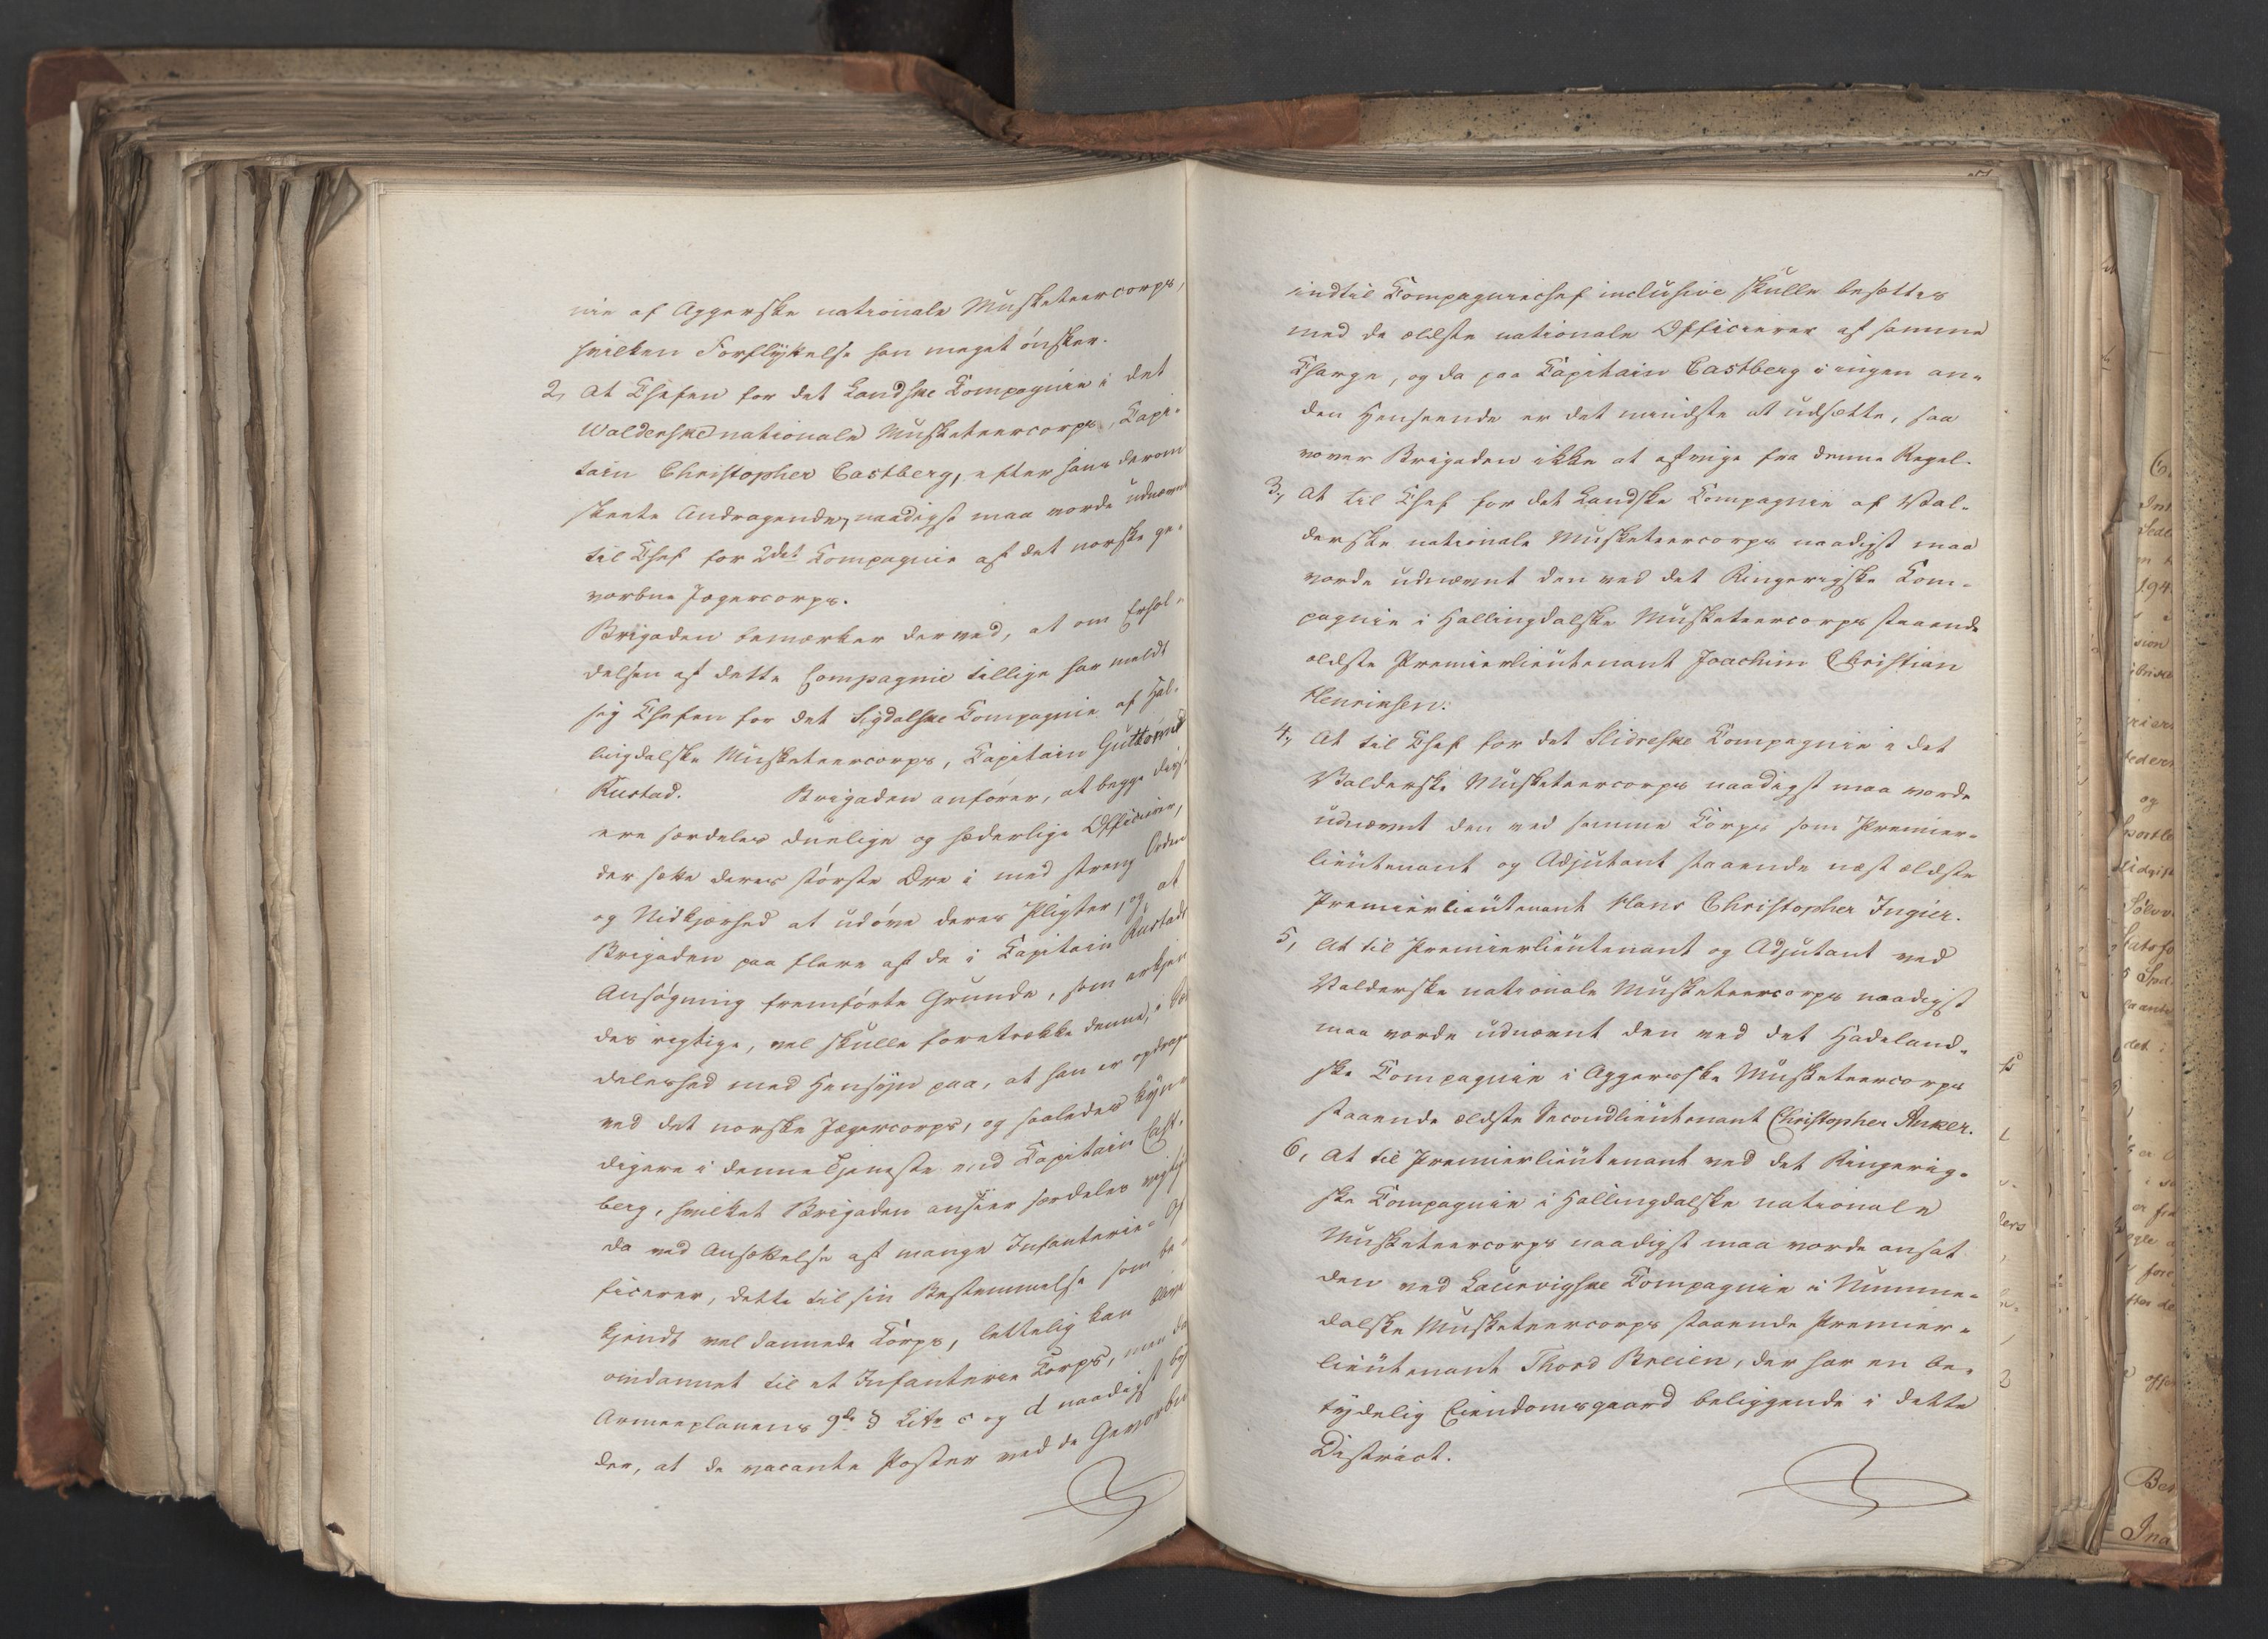 nie af Aggerske nationale Musketeercorps,
hvilken Forflyttelse han meget ønsker.
2, At Chefen for det Landske Compagnie i det
Walderske nationale Musketeercorps, Capi-
tain Christopher Castberg, efter hans derom
skeete Andragende, naadigst maa vorde udnævnt
til Chef for 2det Compagnie af det norske ge-
vorbne Jægercorps.
Brigaden bemærker derved, at om Erhol-
delsen af dette Compagnie tillige har meldt
sig Chefen for det Sigdalske Compagnie af Hal-
lingdalske Musketeercorps, Capitain Guttorm
Rustad. Brigaden anfører, at begge disse
ere særdeles duelige og hæderlige Officierer,
der sætte deres største Ære i med streng Orden
og Nidkjærhed at udøve deres Pligter, og at
Brigaden paa flere af de i Capitain Rustads
Ansøgning fremførte Grunde, som erkjen
des rigtige, vel skulle foretrække denne, i Sær
deleshed med Hensyn paa, at han er opdraget
ved det norske Jægercorps, og saaledes kyn-
digere i denne Tjeneste end Capitain Cast-
berg, hvilket Brigaden ansee særdeles vigtigt
da ved Ansættelse af mange Infanterie-Of
ficerer, dette til sin Bestemmelse som be-
kjendt vel dannede Corps, lettelig kan blive
omdannet til et Infanterie Corps, men da
Armeeplanens 9de § Litr. c og d naadigst by
der, at de vacante Poster ved de Gevorbne
indtil Compagniechef inclusive skulle besættes
med de ældste nationale Officierer af samme
Charge, og da paa Capitain Castberg i ingen an-
den Henseende er det mindste at udsætte, saa
vover Brigaden ikke at afvige fra denne Regel.
3, At til Chef for det Landske Compagnie af Val-
derske nationale Musketeercorps naadigst maa
vorde udnævnt den ved det Ringerigske Com-
pagnie i Hallingdalske Musketeercorps staaende
ældste Premierlieutenant Joachim Christian
Henriksen.
4, At til Chef for det Slidreske Compagnie i det
Valderske Musketeercorps naadigst maa vorde
udnævnt den ved samme Corps som Premier-
lieutenant og Adjutant staaende næst ældste
Premierlieutenant Hans Christopher Ingier.
5, At til Premierlieutenant og Adjutant ved
Valderske nationale Musketeercorps naadigst
maa vorde udnævnt den ved det Hadeland-
ske Compagnie i Aggersske Musketeercorps
staaende ældste Secondlieutenant Christopher Anker.
6, At til Premierlieutenant ved det Ringerig-
ske Compagnie i Hallingdalske nationale
Musketeercorps naadigst maa vorde ansat
den ved Laurvigske Compagnie i Numme-
dalske Musketeercorps staaende Premier-
lieutenant Thord Breien, der har en be-
tydelig Eiendomsgaard beliggende i dette
District.